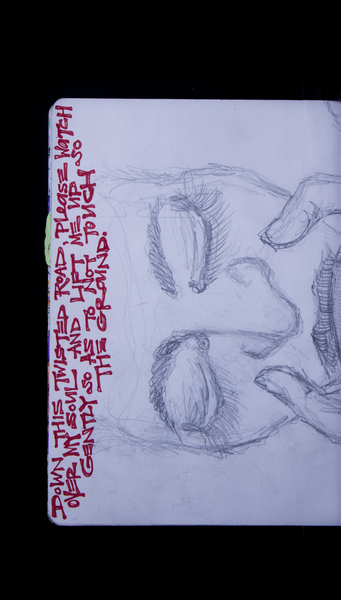 DOWN THIS TWISTED ROAD, PLEASE WATCH
OVER MY SOUL AND LIFT ME UP SO
GENTLY SO AS TO NOT TOUCH
THE GROUND.